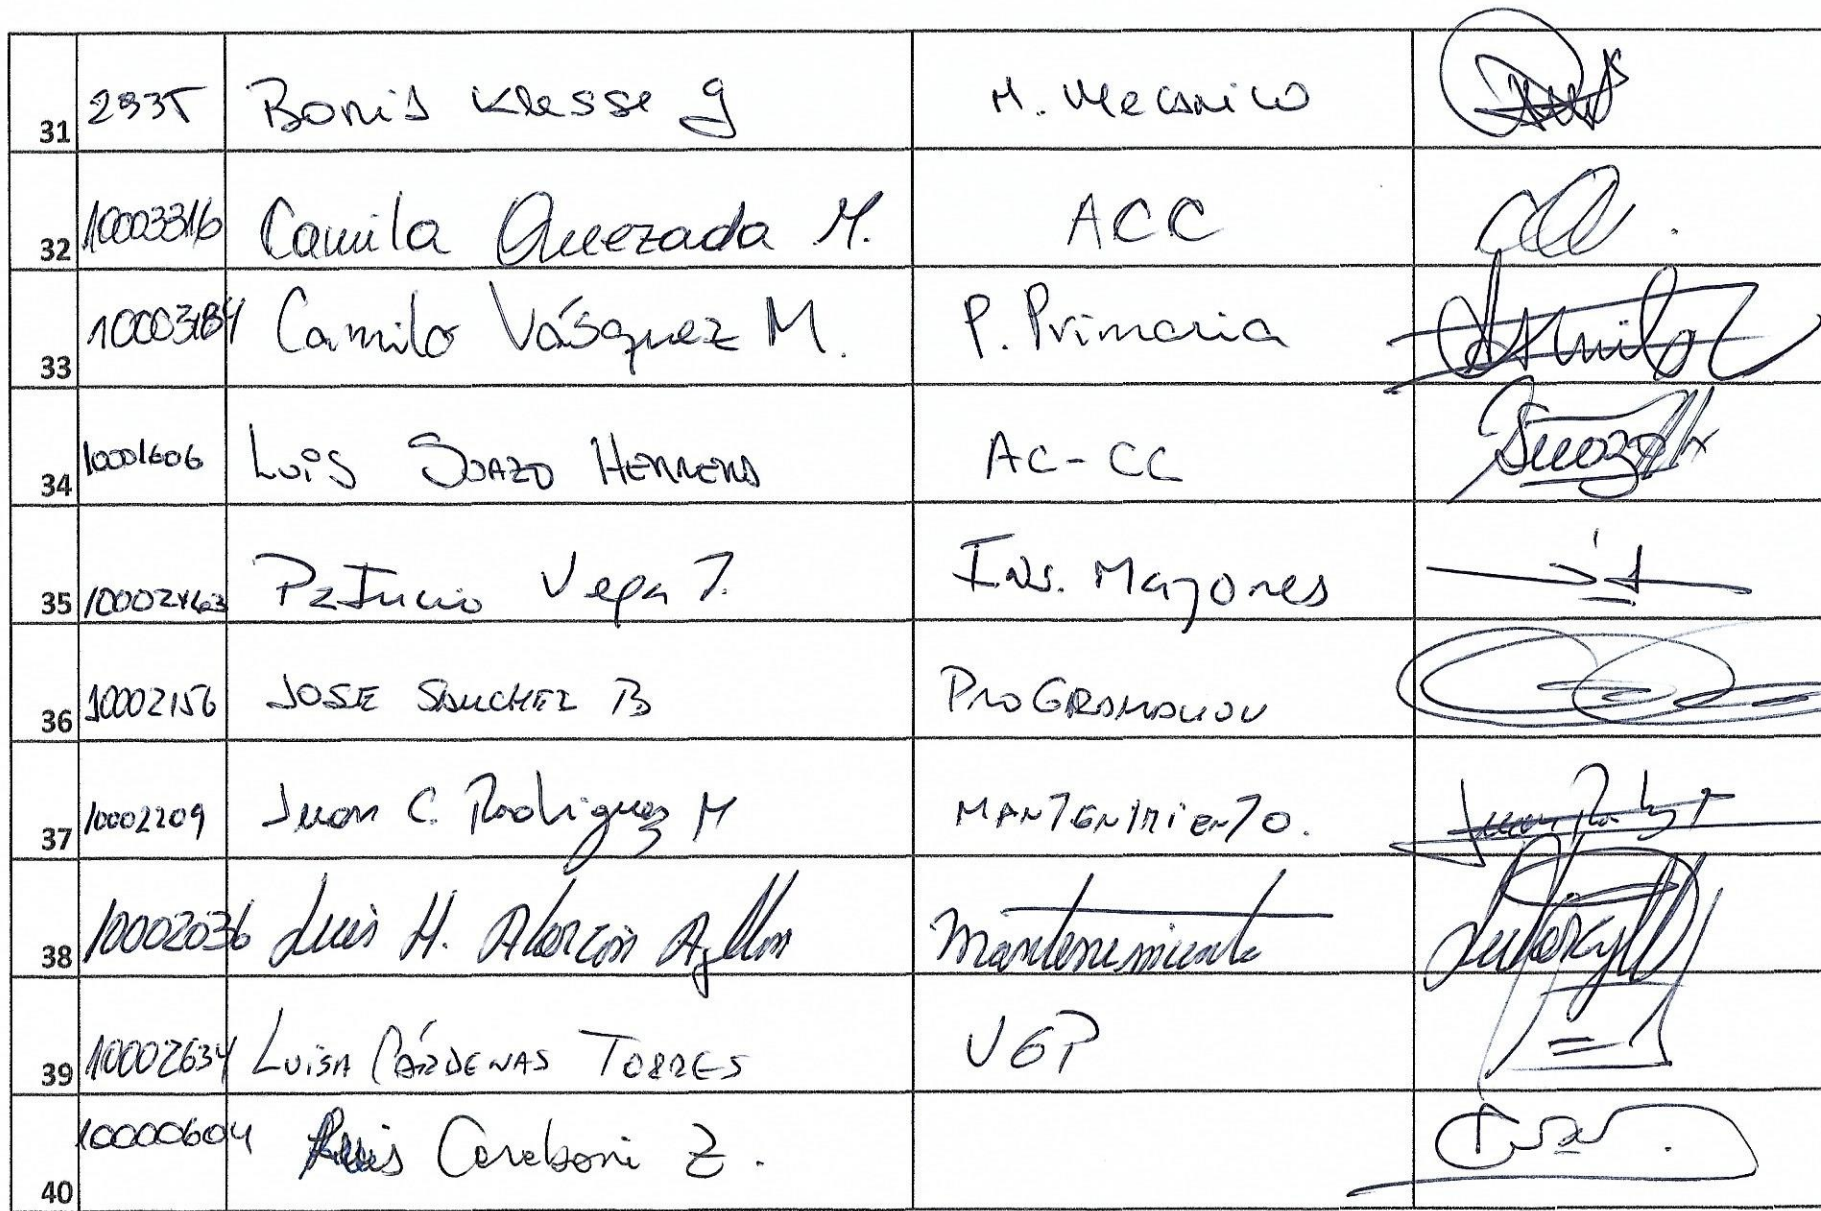 31 2935 Boris Klesse G M. Mecanico
32 10003316 Camila Quezada M. ACC
33 10003184 Camilo Vásquez M. P. Primaria
34 10001606 Luis Suazo Herrera AC-CC
35 10002463 Patricio Vega T. Ins. Mayores
36 10002156 JOSE SANCHEZ B PROGRAMADOR
37 10002209 Juan C. Rodriguez M MANTENIMIENTO.
38 10002036 Luis H. Alarcón Ayllon Mantenimiento
39 10002634 LUISA CÁRDENAS TORRES VGP
40 10000604 Luis Careboni Z.